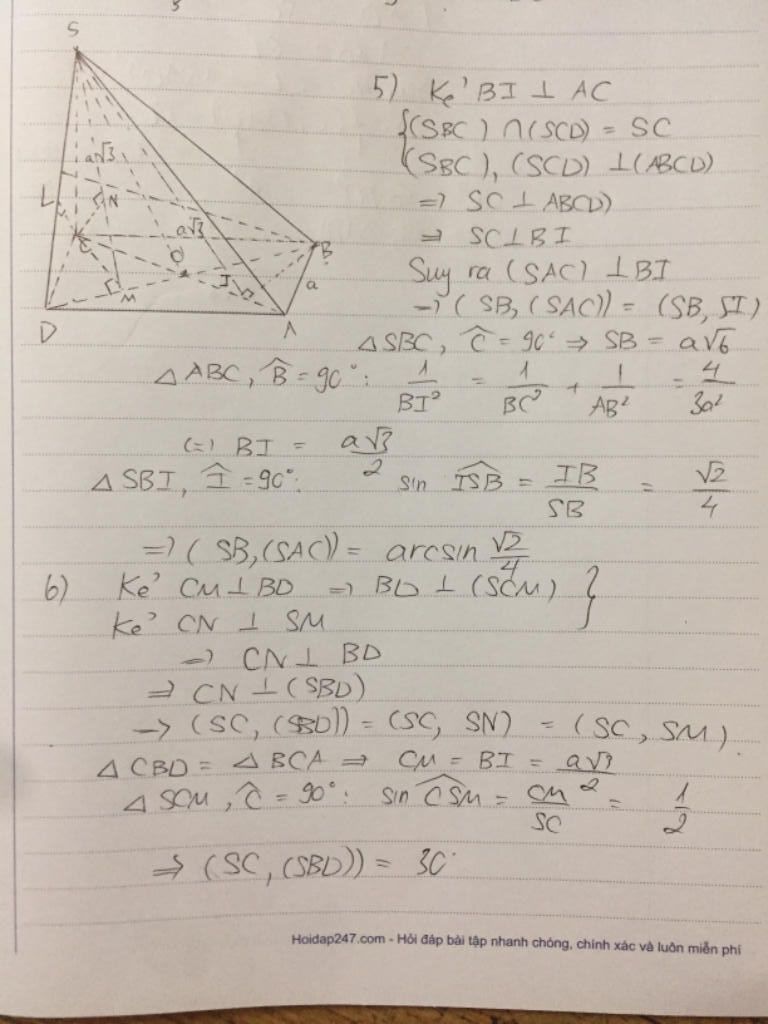 S
a√3
L
N
C
a√3
O
I
B
a
M
D
A
5) Kẻ BI ⊥ AC
{(SBC) ∩ (SCD) = SC
(SBC), (SCD) ⊥ (ABCD)
=> SC ⊥ ABCD)
=> SC ⊥ BI
Suy ra (SAC) ⊥ BI
→ (SB, (SAC)) = (SB, SI)
△SBC, Ĉ = 90° => SB = a√6
△ABC, B̂ = 90°: 1/BI² = 1/BC² + 1/AB² = 4/3a²
(=) BI = a√3/2
△SBI, Î = 90°: sin ISB = IB/SB = √2/4
=> (SB, (SAC)) = arcsin √2/4
6) Kẻ CM ⊥ BD => BD ⊥ (SCM) }
Kẻ CN ⊥ SM
=> CN ⊥ BD
=> CN ⊥ (SBD)
→ (SC, (SBD)) = (SC, SN) = (SC, SM)
△CBD = △BCA => CM = BI = a√3/2
△SCM, Ĉ = 90°: sin CSM = CM/SC = 1/2
=> (SC, (SBD)) = 30°
Hoidap247.com - Hỏi đáp bài tập nhanh chóng, chính xác và luôn miễn phí